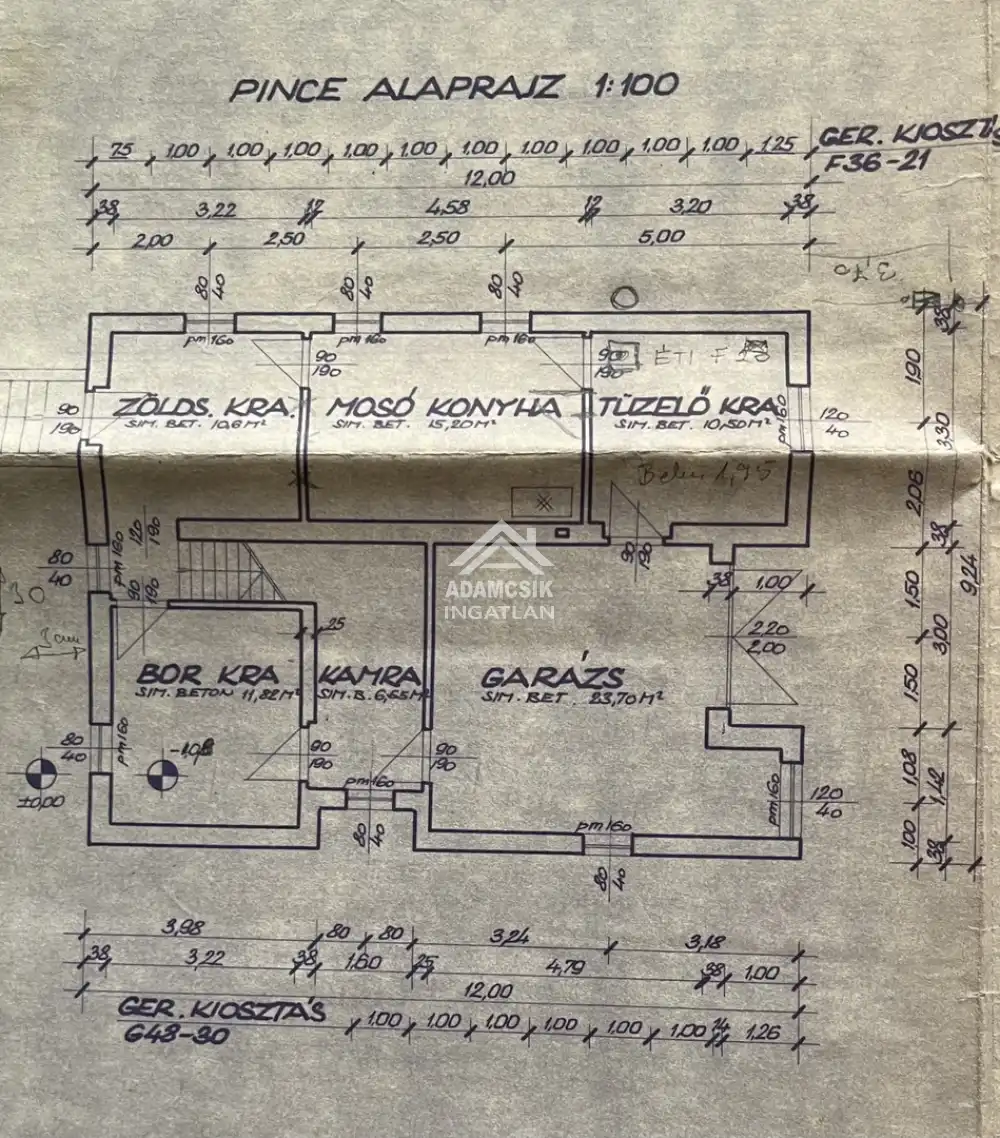 PINCE ALAPRAJZ 1:100
75 1.00 1.00 1.00 1.00 1.00 1.00 1.00 1.00 1.00 1.00 1.25
GER. KIOSZTÁS
F36-21
12,00
38 3,22 12 4,58 12 3,20 38
2,00 2,50 2,50 5,00
80 40
80 40
80 40
3,70
pm 160 pm 160 pm 160
90 190
90 190
ÉTI F
38
1,90
ZÖLDS. KRA.
SIM. BET. 10,6 M²
MOSÓ KONYHA
SIM. BET. 15,20 M²
TÜZELŐ KRA
SIM. BET. 10,50 M²
90 190
pm 160
120 40
3,30
2,06
38
1,95
120 190
80 40
pm 160
90 190
90 190
38 1,00
1,50
9,24
ADAMCSIK
INGATLAN
30
3 cm
25
2,20
2,00
3,00
BOR KRA
SIM. BETON 11,82 M²
KAMRA
SIM. B. 6,65 M²
GARÁZS
SIM. BET. 23,70 M²
1,50
80 40
pm 160
-1,08
±0,00
90 190
90 190
pm 160
80 40
pm 160
120 40
1,08
1,42
pm 160
80 40
1,00
38
3,98 80 80 3,24 3,18
38 3,22 38 1,60 25 4,79 38 1,00
12,00
GER. KIOSZTÁS
G48-30
1,00 1,00 1,00 1,00 1,00 1,00 14 1,26